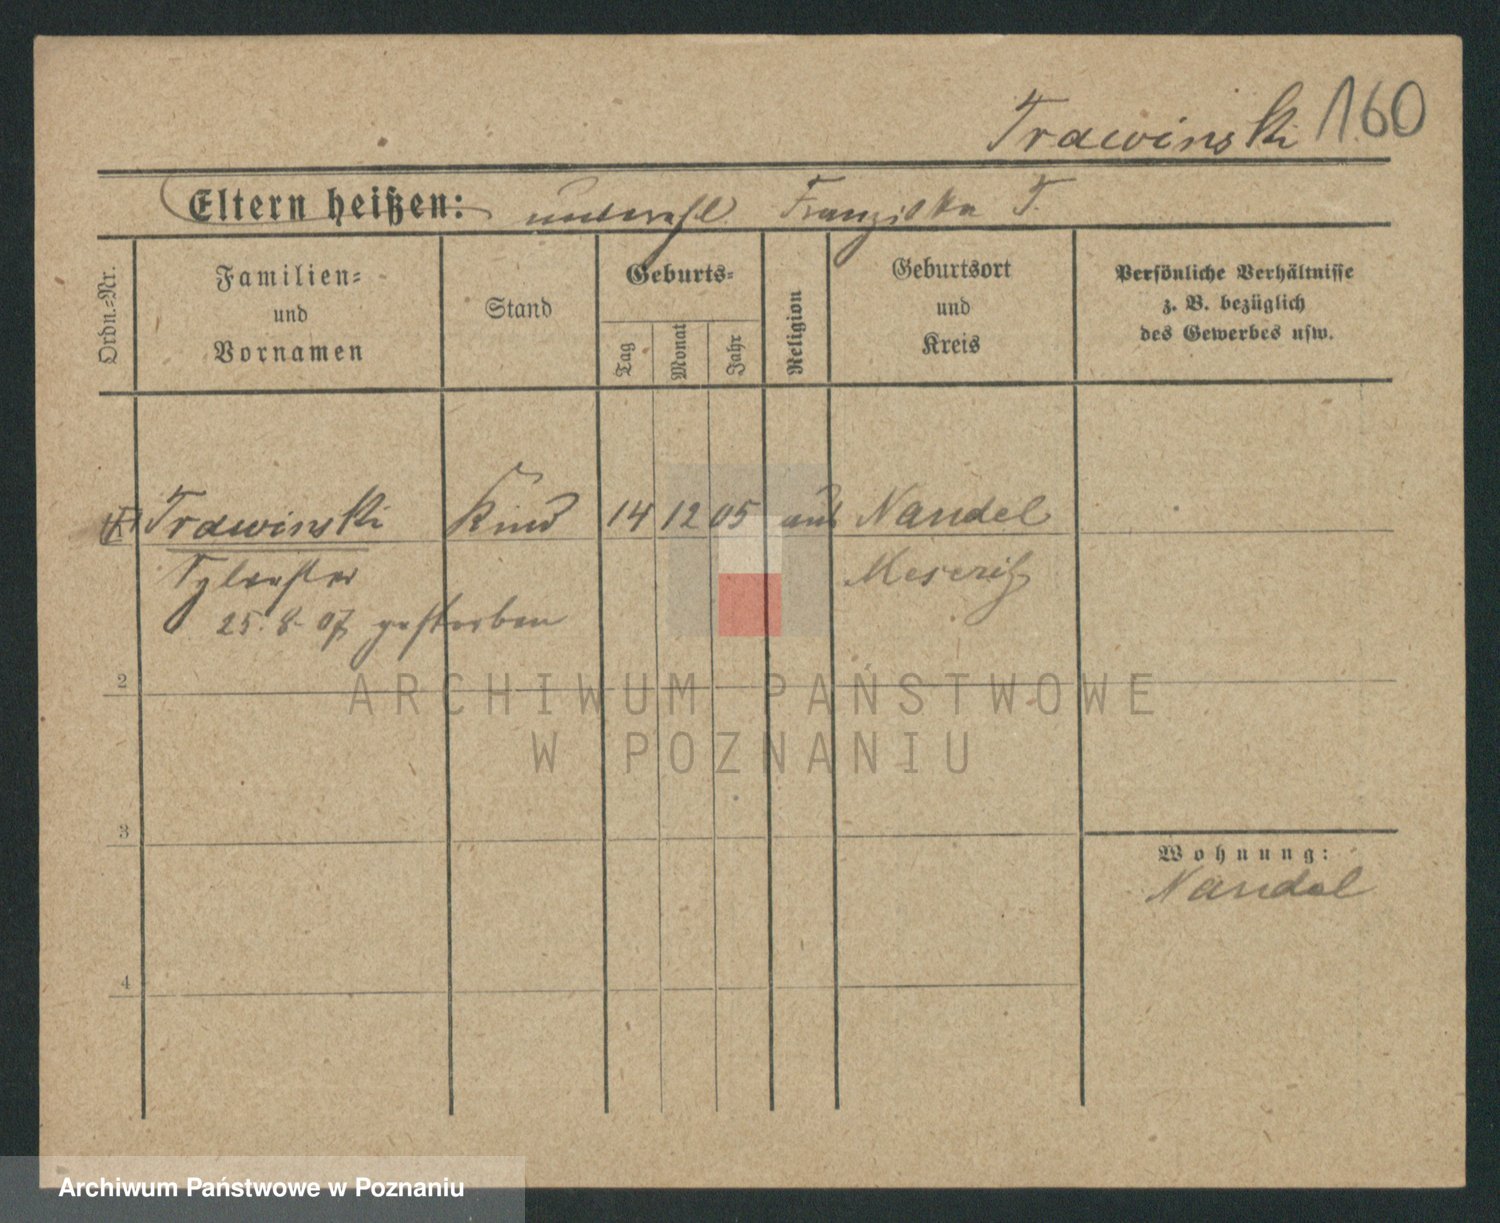 Trawinski 160
Eltern heißen: unverehl Franziska T.
Ordn.-Nr.
Familien-
und
Vornamen
Stand
Geburts-
Tag
Monat
Jahr
Religion
Geburtsort
und
Kreis
Persönliche Verhältnisse
z. B. bezüglich
des Gewerbes usw.
Trawinski Kind 14 12 05 Nandel
Sylvester Meseritz
25. 8. 07 gestorben
2
3
4
Wohnung:
Nandel
ARCHIWUM PAŃSTWOWE
W POZNANIU
Archiwum Państwowe w Poznaniu